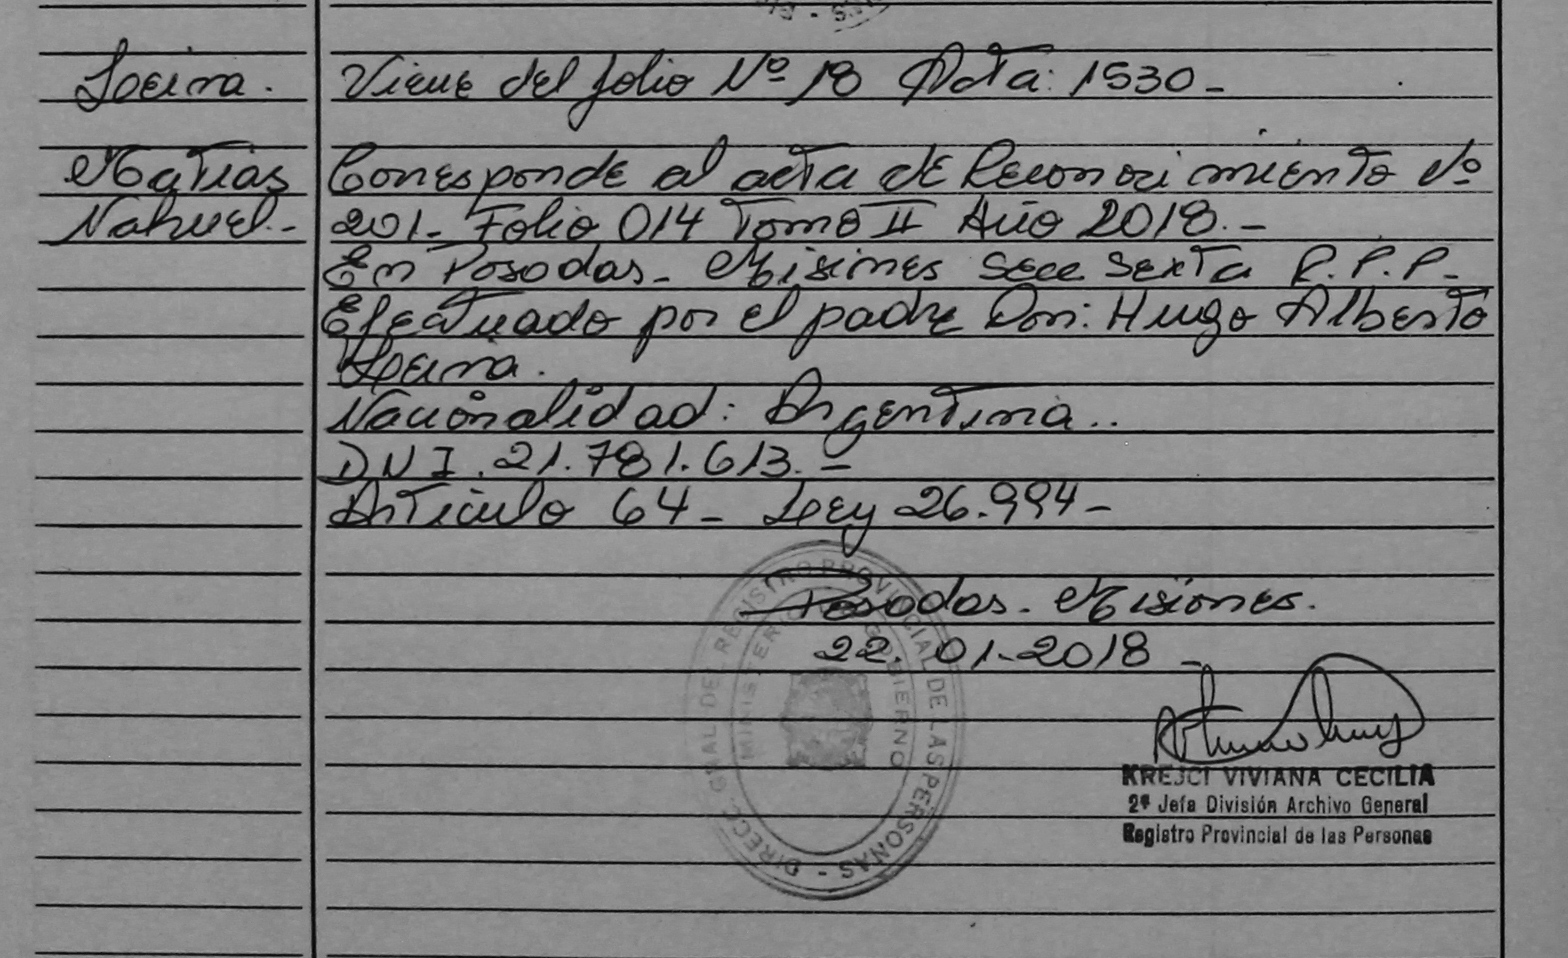 Viene del folio Nº 18 Acta: 1530-
Matias
Nahuel.-
Corresponde al acta de Reconocimiento Nº
201- Folio 014 Tomo II Año 2018.-
En Posadas- Misiones Secc Sexta R.P.P.-
Efectuado por el padre Don: Hugo Alberto
Nacionalidad: Argentina..
DNI. 21.781.613.-
Articulo 64- Ley 26.994-
Posadas. Misiones.
22-01-2018-
KREJCI VIVIANA CECILIA
2ª Jefa División Archivo General
Registro Provincial de las Personas
DIRECC GRAL DE REGISTRO PROVINCIAL DE LAS PERSONAS -
MINISTERIO DE GOBIERNO